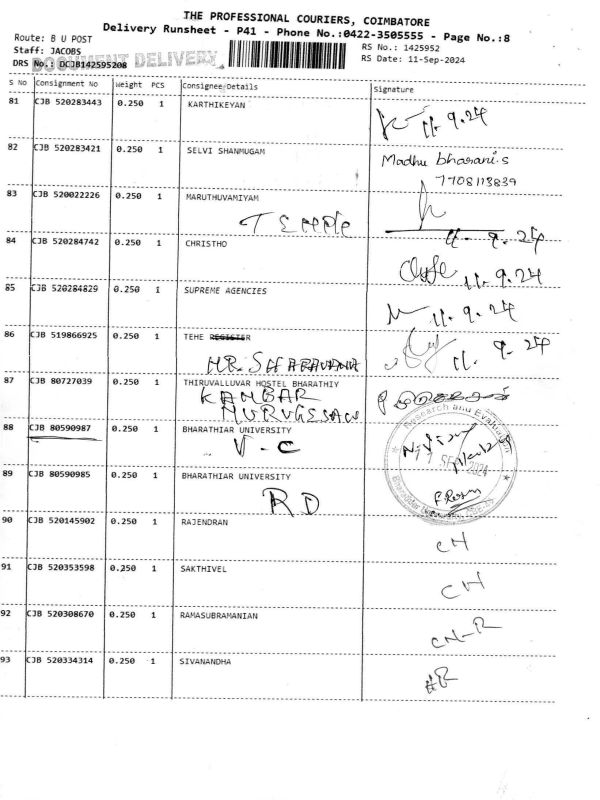 THE PROFESSIONAL COURIERS, COIMBATORE
Delivery Runsheet - P41 - Phone No.:0422-3505555 - Page No.:8
Route: B U POST
RS No.: 1425952
Staff: JACOBS
RS Date: 11-Sep-2024
DOCUMENT DELIVERY
DRS No.: DCJB142595208
S No Consignment No Weight PCS Consignee/Details Signature
81 CJB 520283443 0.250 1 KARTHIKEYAN
11.9.24
82 CJB 520283421 0.250 1 SELVI SHANMUGAM Madhu bharani.s
7708113839
83 CJB 520022226 0.250 1 MARUTHUVAMIYAM
11.9.24
84 CJB 520284742 0.250 1 CHRISTHO
11.9.24
85 CJB 520284829 0.250 1 SUPREME AGENCIES
11.9.24
86 CJB 519866925 0.250 1 TEHE REGISTER
MR. SHARAVANA 11.9.24
87 CJB 80727039 0.250 1 THIRUVALLUVAR HOSTEL BHARATHIY
KAMBAR
MURUGESAN
Research and Evaluation
88 CJB 80590987 0.250 1 BHARATHIAR UNIVERSITY
V-C
SEP 2024
89 CJB 80590985 0.250 1 BHARATHIAR UNIVERSITY
RD
Bharathiar University
90 CJB 520145902 0.250 1 RAJENDRAN
CH
91 CJB 520353598 0.250 1 SAKTHIVEL
CH
92 CJB 520308670 0.250 1 RAMASUBRAMANIAN
CH-R
93 CJB 520334314 0.250 1 SIVANANDHA